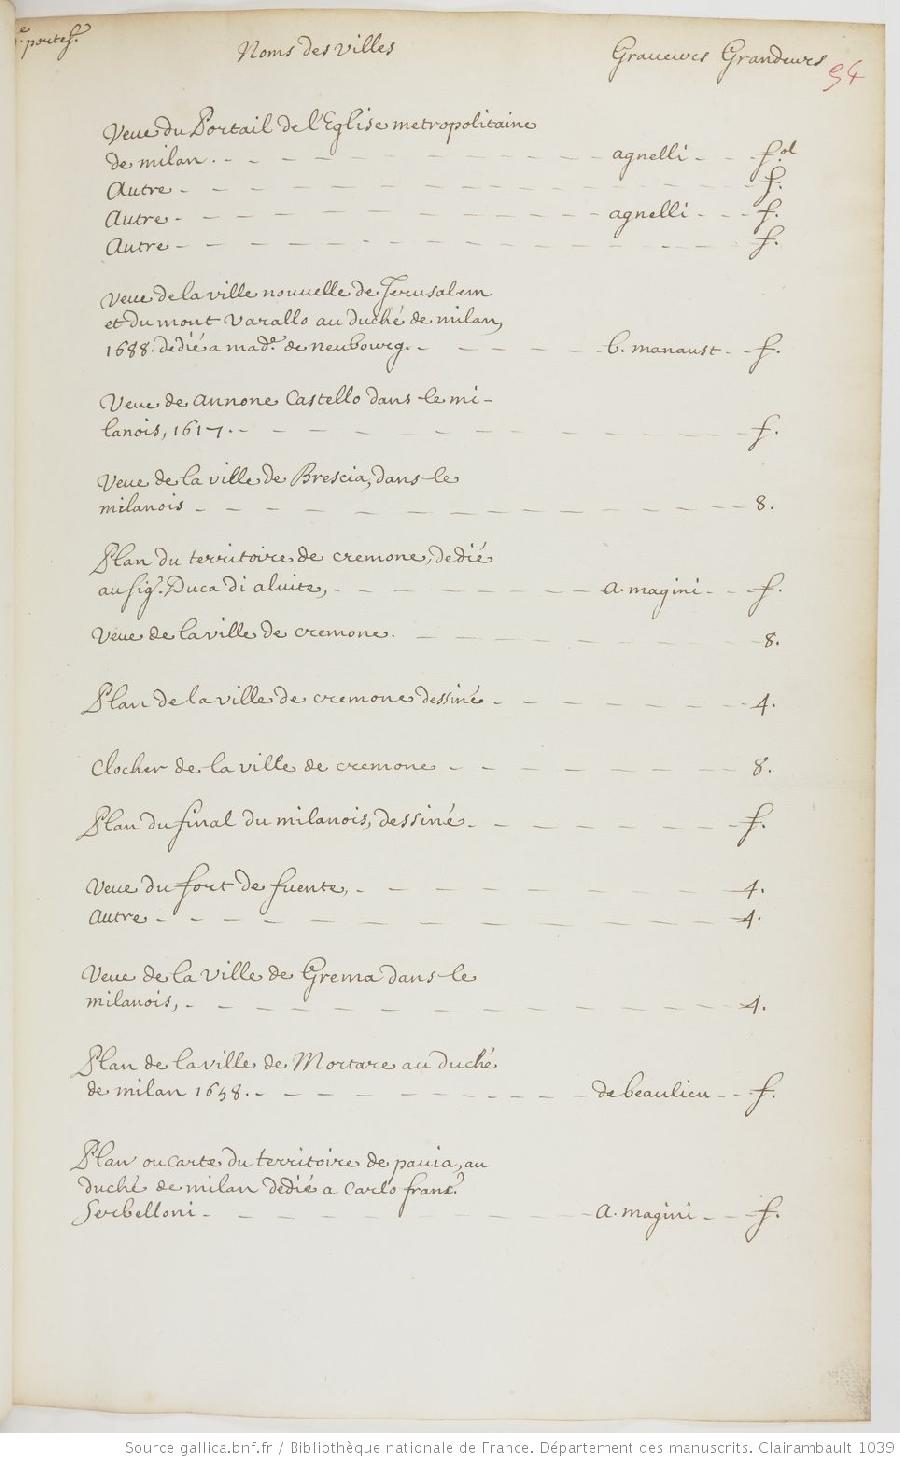 e. portef.
Noms des villes Graueurs Grandeurs
94
Veue du Portail de l'Eglise metropolitaine
de milan. agnelli f.ol
Autre f.
Autre agnelli f.
Autre f.
Veue de la ville nouuelle de Jerusalem
et du mont Varallo au duché de milan,
1688. dedié a made. de neubourg. b. manaust f.
Veue de annone Castello dans le mi-
lanois, 1617. f.
Veue de la ville de Brescia, dans le
milanois 8.
Plan du territoire de cremone, dedié
au sig. Duca di aluite, a. magini f.
Veue de la ville de cremone. 8.
Plan de la ville de cremone dessiné 4.
Clocher de la ville de cremone 8.
Plan du final du milanois, dessiné f.
Veue du fort de fuente, 4.
autre 4.
Veue de la Ville de Grema dans le
milanois, 4.
Plan de la ville de Mortare au duché
de milan 1658. de beaulieu f.
Plan ou carte du territoire de pauia, au
duché de milan dedié a Carlo franc.o
Serbelloni a. magini f.
Source gallica.bnf.fr / Bibliothèque nationale de France. Département des manuscrits. Clairambault 1039